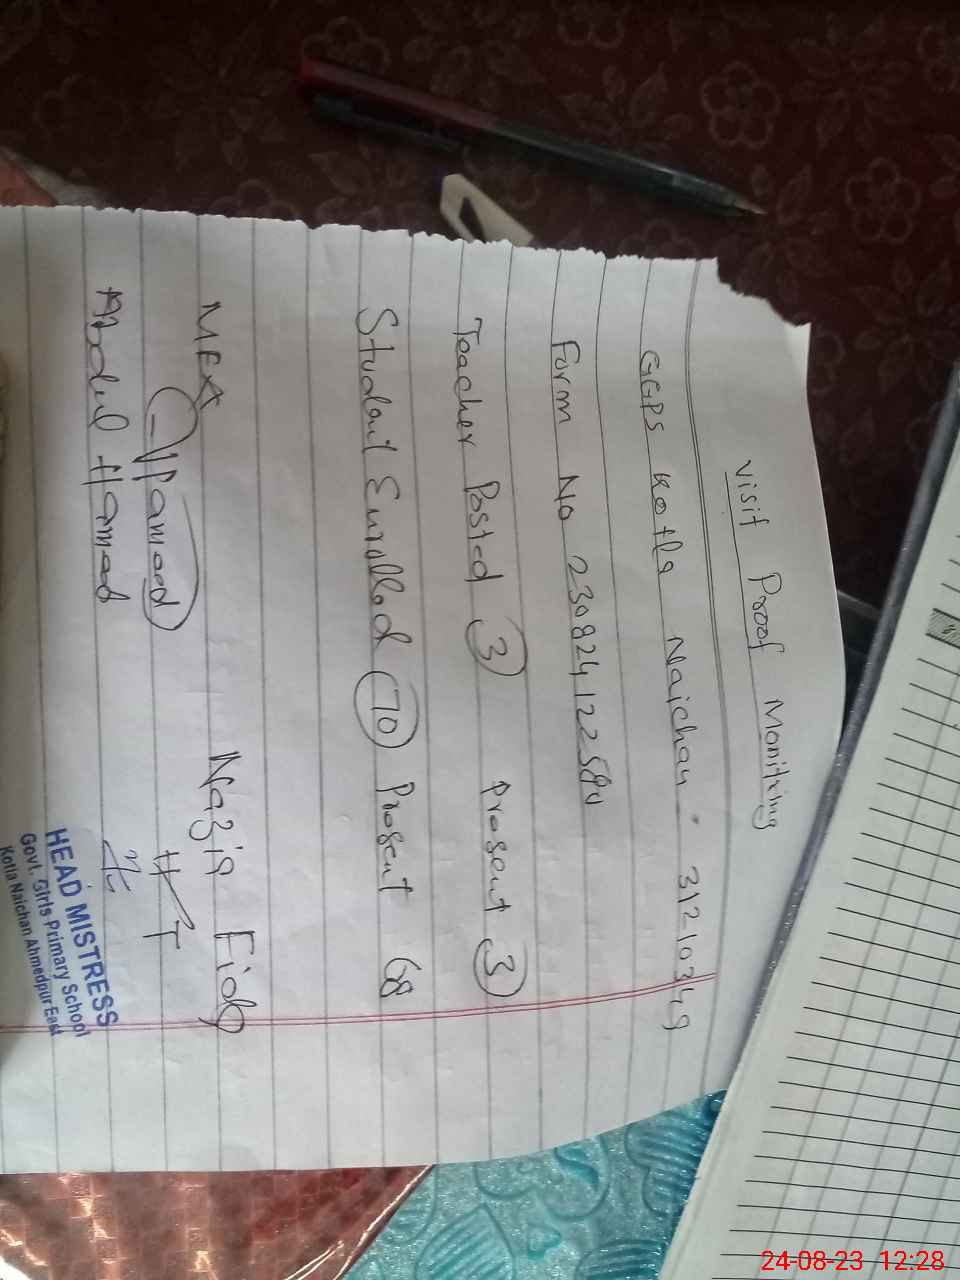 Visit Proof Monitring
GGPS Kotla Naichan . 31210349
Form No 230824122580
Teacher Posted 3 Present 3
Student Enrolled 70 Present 68
MEA Nazia Fida
Hamad H/T
Abdul Hamad
HEAD MISTRESS
Govt. Girls Primary School
Kotla Naichan Ahmedpur East
24-08-23 12:28